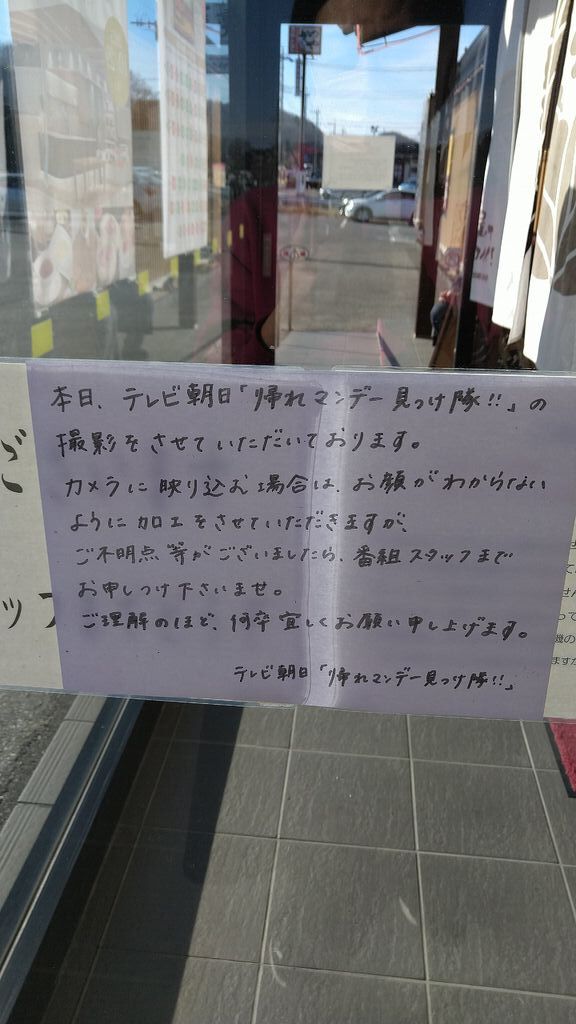 本日、テレビ朝日「帰れマンデー見つけ隊!!」の
撮影をさせていただいております。
カメラに映り込む場合は、お顔がわからない
ようには加工をさせていただきますが、
ご不明点等がございましたら、番組スタッフまで
お申しつけ下さいませ。
ご理解のほど、何卒宜しくお願い申し上げます。
テレビ朝日「帰れマンデー見つけ隊!!」
ご
ッフ